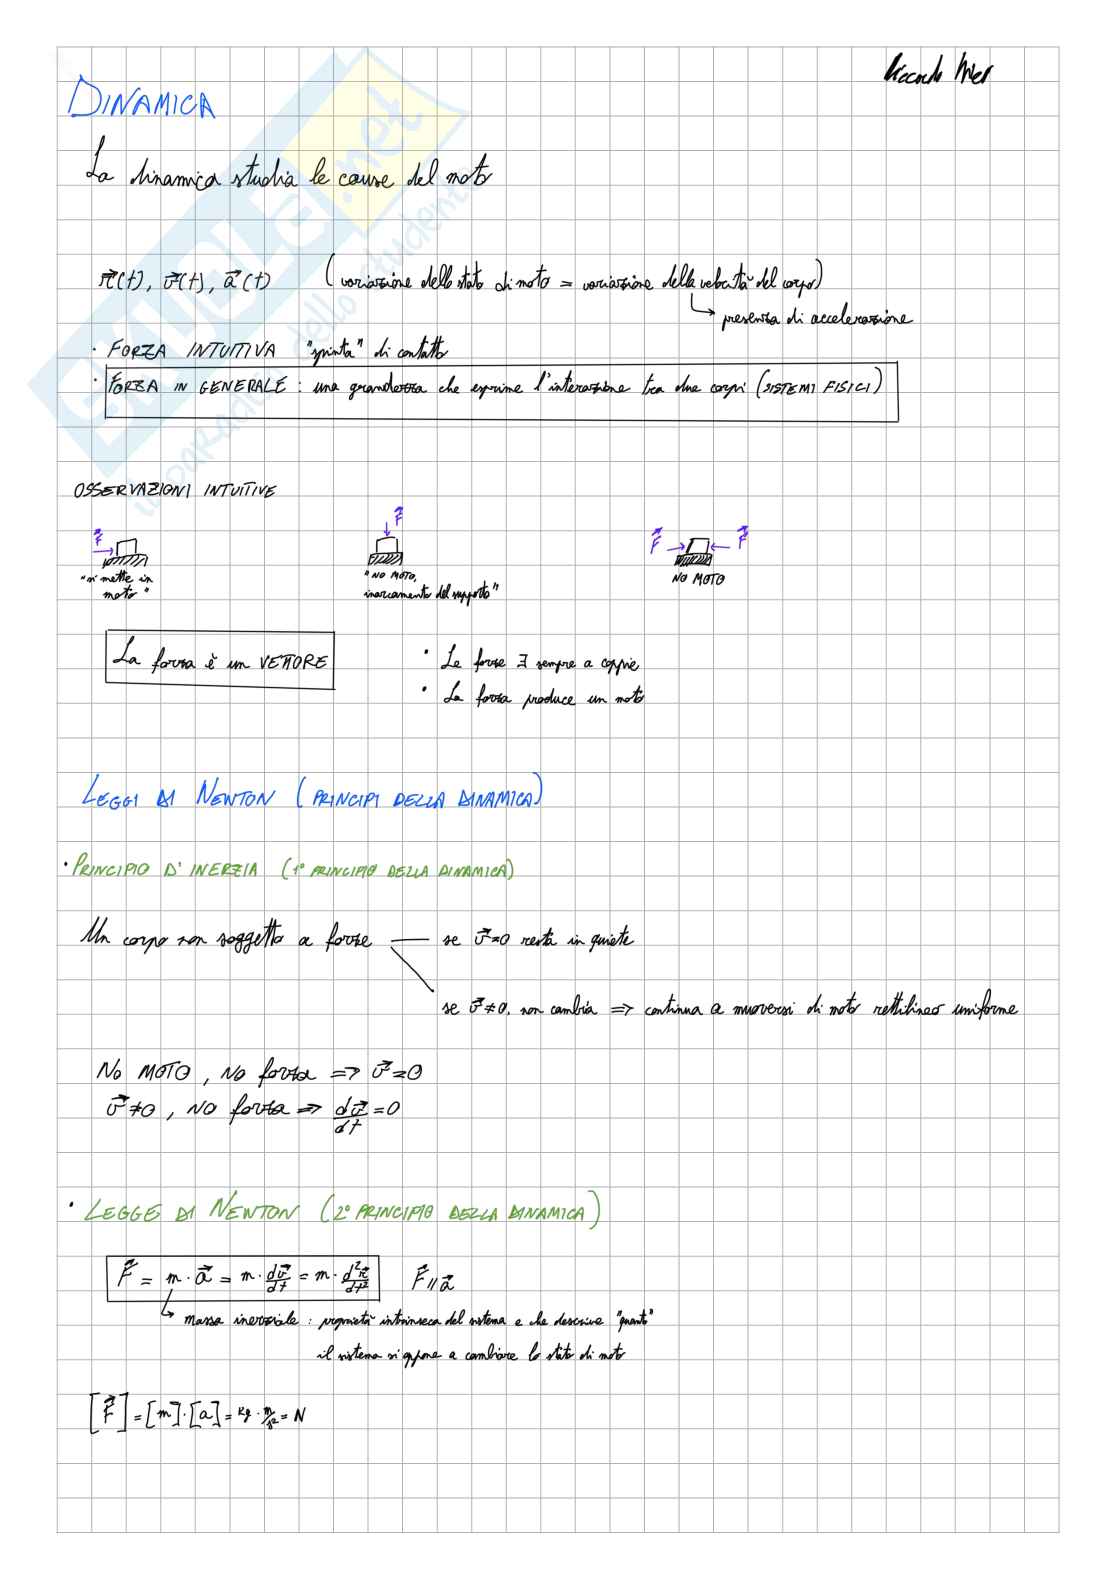 Riccardo
DINAMICA
La dinamica studia le cause del moto
r⃗(t), v⃗(t), a⃗(t) (variazione dello stato di moto = variazione della velocità del corpo)
↳ presenza di accelerazione
· FORZA INTUITIVA "spinta" di contatto
· FORZA IN GENERALE : una grandezza che esprime l'interazione tra due corpi (SISTEMI FISICI)
OSSERVAZIONI INTUITIVE
F⃗ F⃗ F⃗ F⃗
"si mette in moto"
"NO MOTO, inarcamento del supporto"
NO MOTO
La forza è un VETTORE
· Le forze ∃ sempre a coppie
· La forza produce un moto
LEGGI DI NEWTON (PRINCIPI DELLA DINAMICA)
· PRINCIPIO D'INERZIA (1° PRINCIPIO DELLA DINAMICA)
Un corpo non soggetto a forze — se v⃗=0 resta in quiete
se v⃗≠0, non cambia => continua a muoversi di moto rettilineo uniforme
NO MOTO, NO forza => v⃗=0
v⃗≠0, NO forza => dv⃗/dt = 0
· LEGGE DI NEWTON (2° PRINCIPIO DELLA DINAMICA)
F⃗ = m · a⃗ = m · dv⃗/dt = m · d²r⃗/dt² F⃗ // a⃗
↳ massa inerziale : proprietà intrinseca del sistema e che descrive "quanto"
il sistema si oppone a cambiare lo stato di moto
[F⃗] = [m] · [a] = kg · m/s² = N
skuola.net
il paradiso dello studente